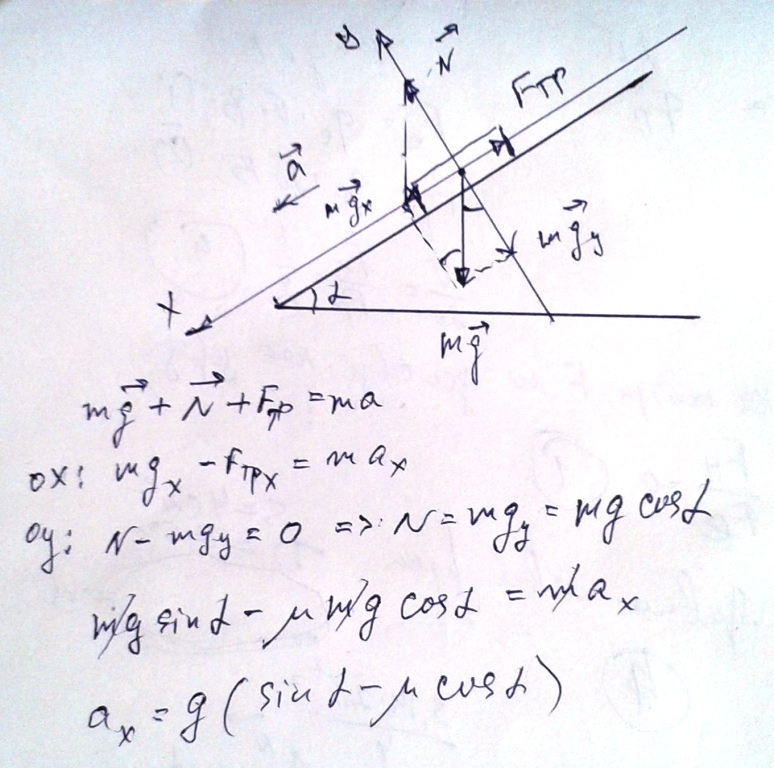 y
N⃗
Fтр
a⃗
mg⃗x
mg⃗y
x
α
mg⃗
mg⃗ + N⃗ + Fтр = ma
ox: mgx - Fтрx = max
oy: N - mgy = 0 => N = mgy = mg cosα
mg sinα - μmg cosα = max
ax = g(sinα - μ cosα)